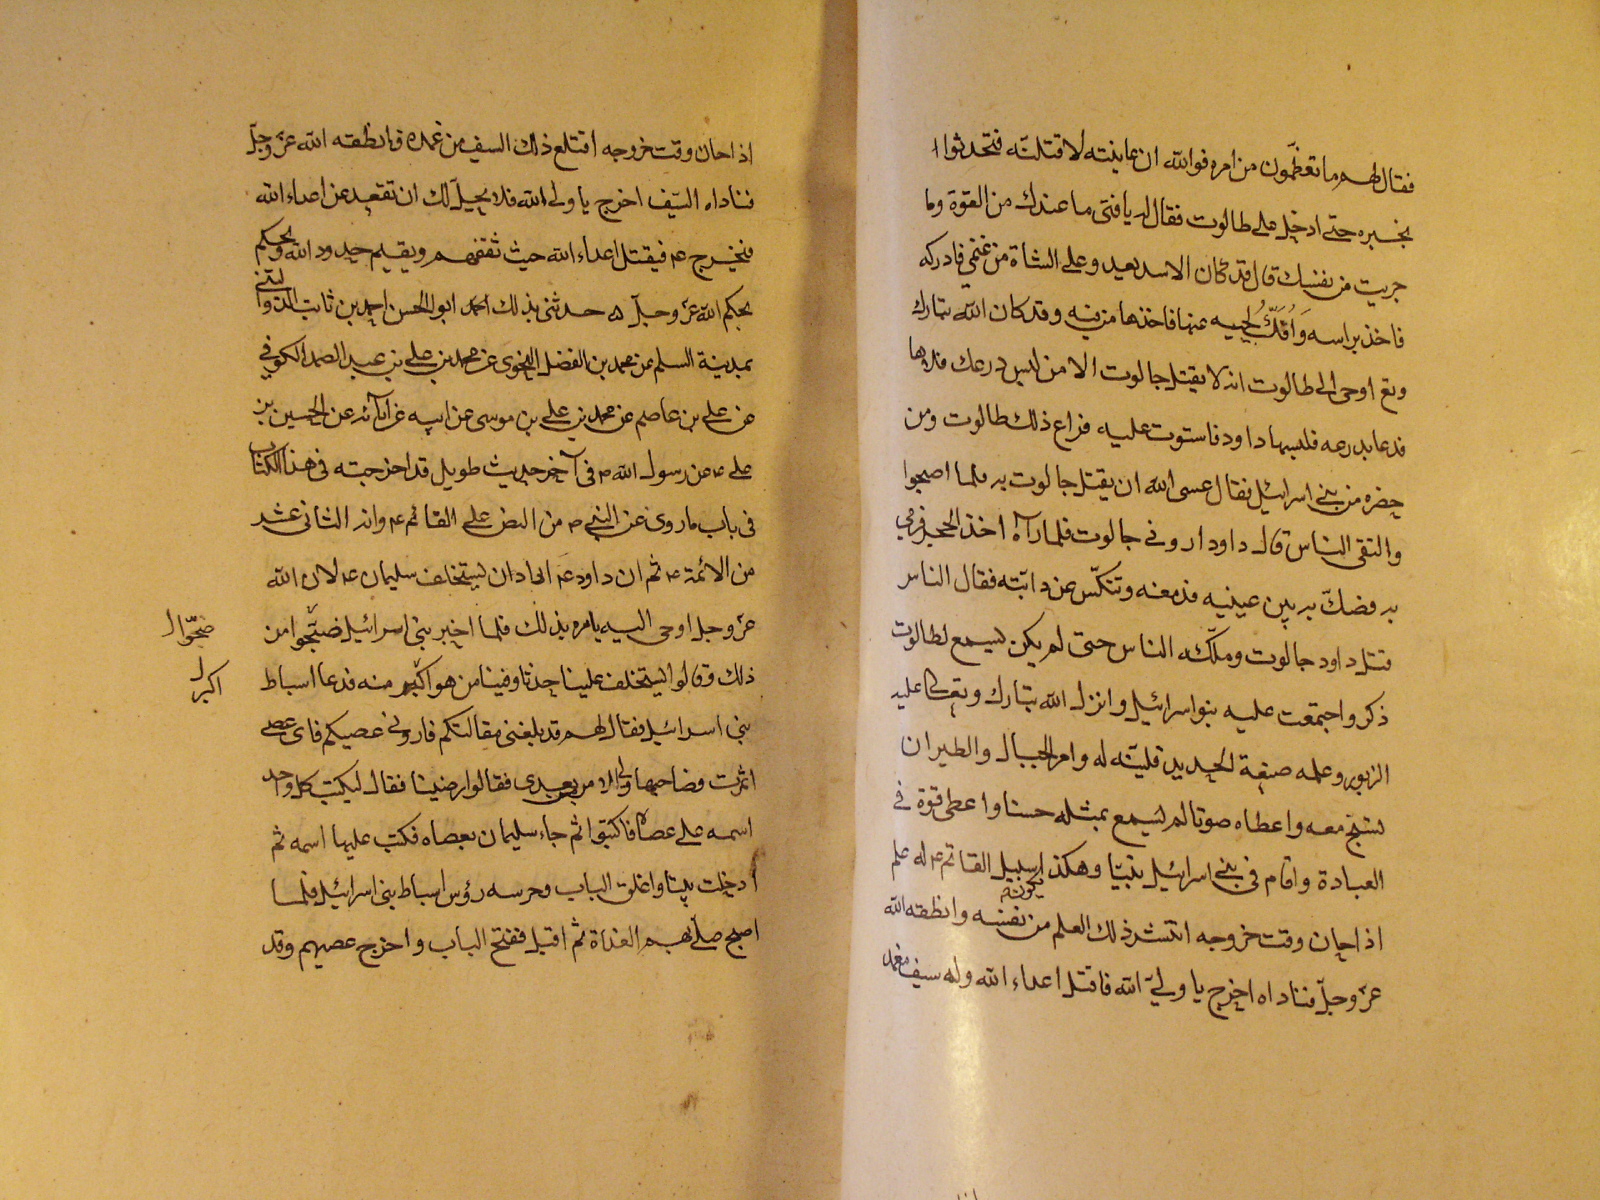 فقال لهم ما تعظّمون من امره فوالله ان عاينته لاقتلنّه فتحدثوا
بخبره حتى ادخل على طالوت فقال له يا فتى ما عندك من القوّة وما
جربت من نفسك قال قد كان الاسد يعدو على الشاة من غنمي فادركه
فاخذ براسه وَاُفَكُّ لحييه عنها فاخذها من فيه وقد كان الله تبارك
وتع اوحى الى طالوت انه لا يقتل جالوت الا من لبس درعك فملاها
فدعا بدرعه فلبسها داود فاستوت عليه فراع ذلك طالوت ومن
حضره من بني اسرائيل فقال عسى الله ان يقتل جالوت به فلما اصبحوا
والتقى الناس قال داود اروني جالوت فلما رآه اخذ الحجر فرمى
به فصكّ به بين عينيه فدمغه وتنكّس عن دابّته فقال الناس
قتل داود جالوت وملّكه الناس حتى لم يكن يسمع لطالوت
ذكر واجتمعت عليه بنو اسرائيل وانزل الله تبارك وتعالى عليه
الزبور وعلمه صنعة الحديد فليّنه له وامر الجبال والطير ان
تسبّح معه واعطاه صوتا لم يسمع بمثله حسنا واعطى قوّة في
العبادة واقام في بني اسرائيل نبيّا وهكذا سبيل القائم ع له علم
يكون
اذا حان وقت خروجه انتشر ذلك العلم من نفسه وانطقه الله
عزّ وجلّ فناداه اخرج يا وليّ الله فاقتل اعداء الله وله سيف مغمد
اذا حان وقت خروجه اقتلع ذلك السيف من غمده وانطقه الله عزّ وجلّ
فناداه السّيف اخرج يا ولي الله فلا يحلّ لك ان تقعد عن اعداء الله
فيخرج ع فيقتل اعداء الله حيث ثقفهم ويقيم حدود الله ويحكم
بحكم الله عزّ وجلّ حدثني بذلك ابو الحسن احمد بن ثابت الدواليني
بمدينة السلم عن محمد بن الفضل النحوى عن محمد بن علي بن عبد الصمد الكوفي
عن علي بن عاصم عن محمد بن علي بن موسى عن ابيه عن آبائه عن الحسين بن
علي ع عن رسول الله ص في آخر حديث طويل قد اخرجته في هذا الكتاب
في باب ما روى عن النبي ص من النص على القائم ع وانه الثاني عشر
من الائمة ع ثم ان داود ع اراد ان يستخلف سليمان ع لان الله
عزّ وجل اوحى اليه يامره بذلك فلما اخبر بني اسرائيل ضجّوا من
ذلك وقالوا يستخلف علينا حدثا وفينا من هو اكبر منه فدعا اسباط
بني اسرائيل فقال لهم قد بلغني مقالتكم فاروني عصيكم فاى عصى
اثمرت فصاحبها ولى الامر بعدى فقالوا رضينا فقال ليكتب كل واحد
اسمه على عصاه فاكتبوا ثم جاء سليمان بعصاه فكتب عليها اسمه ثم
ادخلت بيتا واغلق الباب وحرسه رؤس اسباط بني اسرائيل فلما
اصبح صلّى بهم الغداة ثم اقبل ففتح الباب واخرج عصيهم وقد
ضجّوا ل
اكبر ل